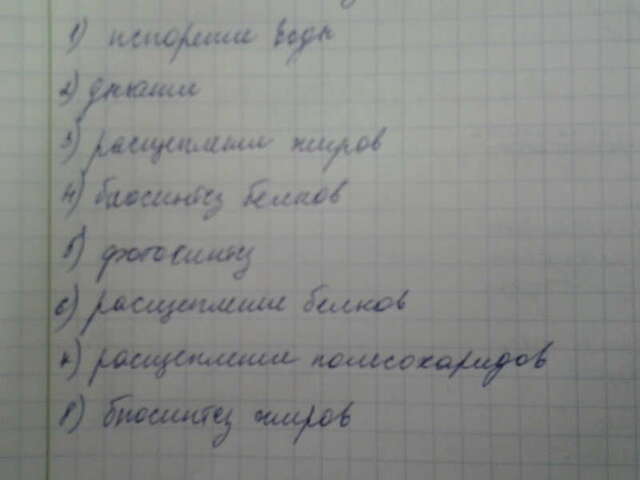 1) испорение воды
2) дыхание
3) расщепление жиров
4) биосинтез белков
5) фотосинтез
6) расщепление белков
7) расщепление полесохаридов
8) биосинтез жиров